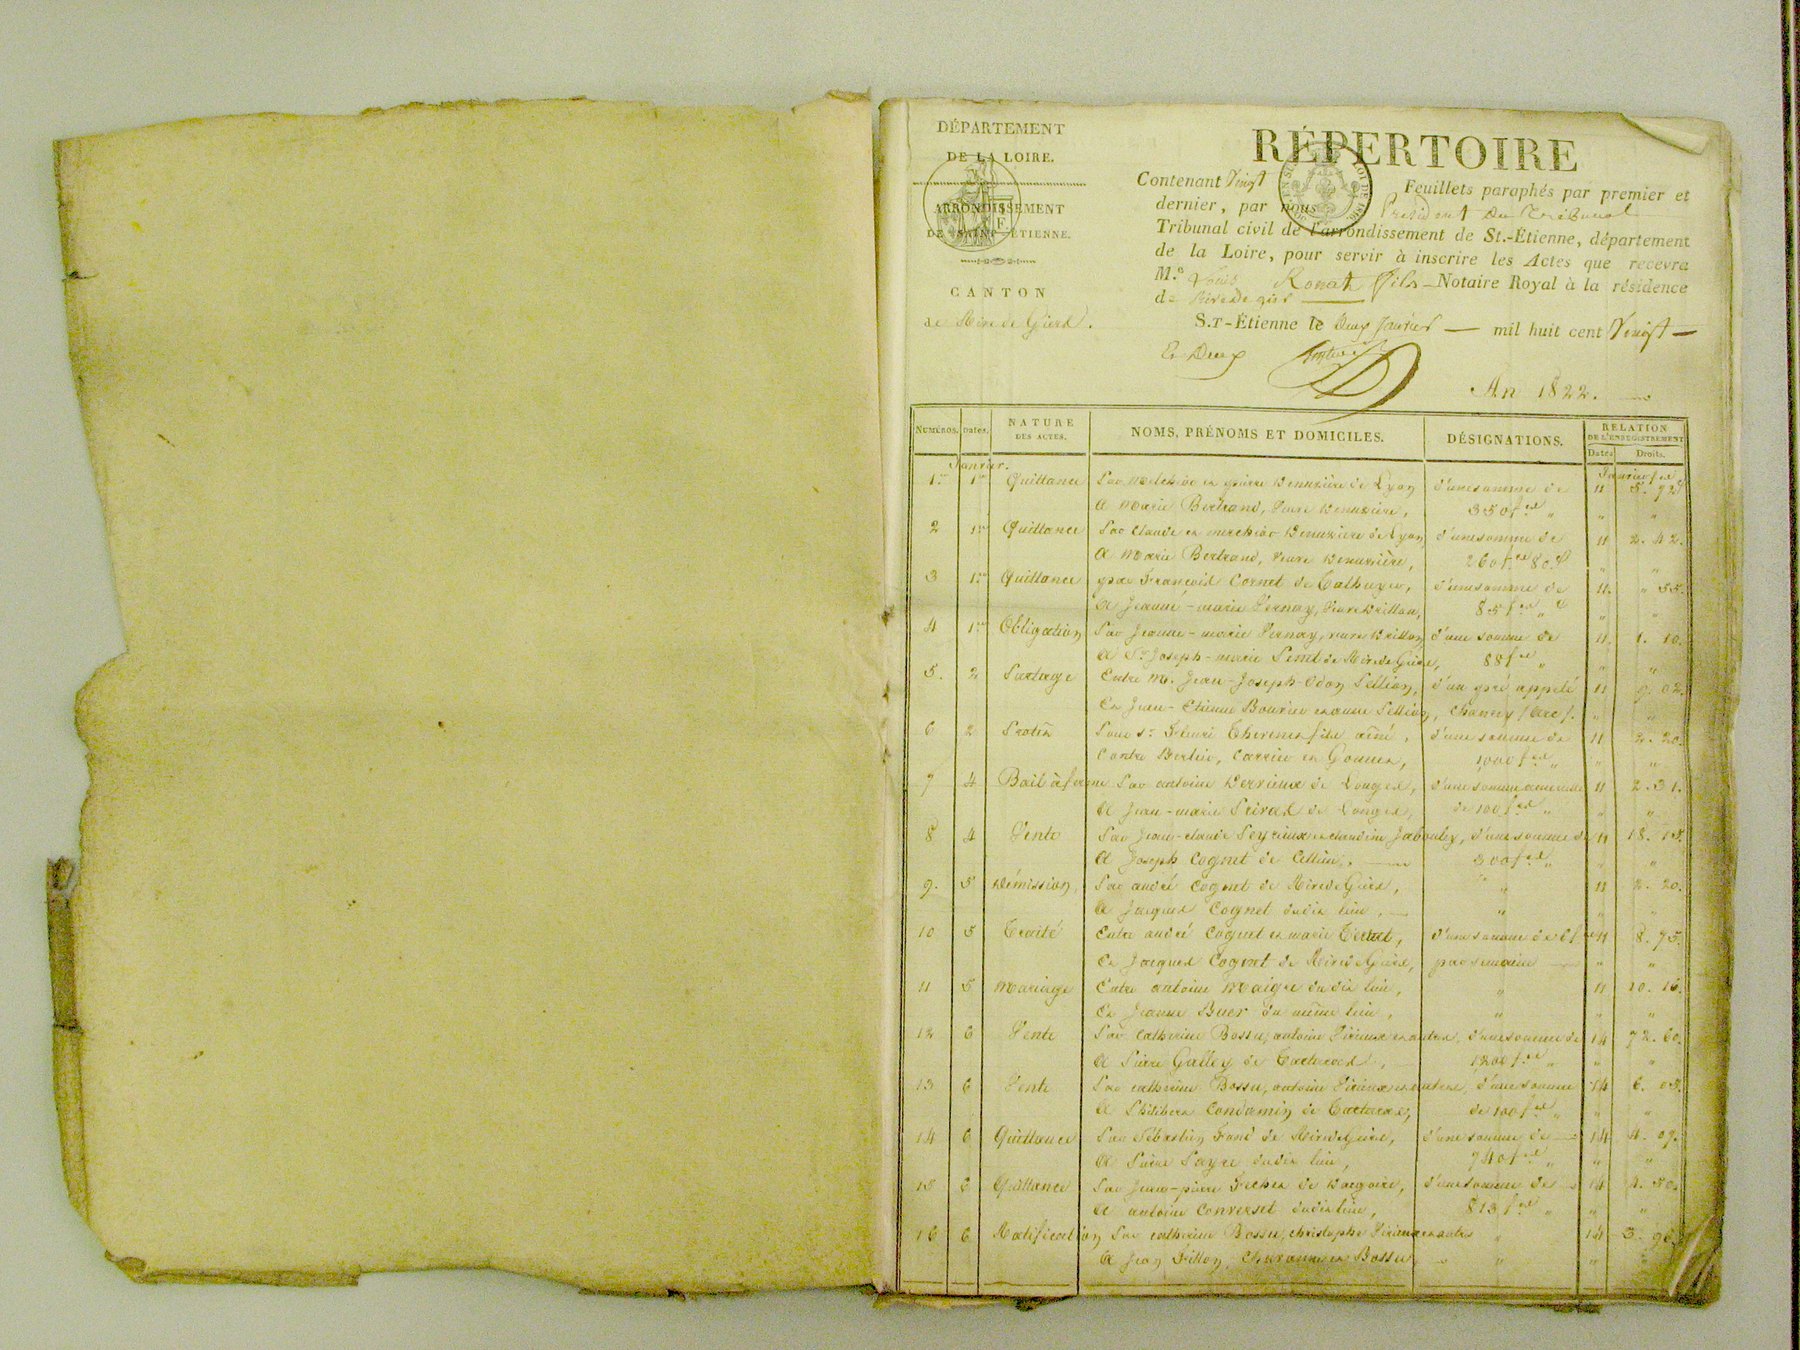 DÉPARTEMENT
DE LA LOIRE.
ARRONDISSEMENT
DE SAINT-ÉTIENNE.
CANTON
de Rive de Gier.
RÉPERTOIRE
Contenant Vingt Feuillets paraphés par premier et
dernier, par nous Président du Tribunal
Tribunal civil de l'arrondissement de St.-Étienne, département
de la Loire, pour servir à inscrire les Actes que recevra
M.e Louis Ronat fils Notaire Royal à la résidence
de Rive de gier
S.T-Étienne le Deux Janvier mil huit cent Vingt
Et Deux
An 1822.
NUMÉROS. Dates. NATURE DES ACTES. NOMS, PRÉNOMS ET DOMICILES. DÉSIGNATIONS. RELATION DE L'ENREGISTREMENT
Dates Droits.
Janvier. Janvier
1er 1er Quittance Par Melchior et pierre de Lyon d'une somme de 11 5. 92
A Marie Bertrand, Veuve 350 f
2 1er Quittance Par Claude et Melchior de Lyon d'une somme de 11 2. 42.
A Marie Bertrand, veuve 260 f 80
3 1er Quittance par François Cornet de d'une somme de 11. " 55.
A Jeanne-marie Vernay, Veuve Drillon, 85 f
4 1er Obligation Par Jeanne-marie Vernay, veuve Drillon d'une somme de 11. 1. 10.
A Sr Joseph-marie de Rive de Gier, 88 f
5. 2 Partage Entre M. Jean-Joseph-Odon d'un pré appelé 11 9. 02.
Et Jean-Etienne
6 2 Protêt Pour Sr fils aîné, d'une somme de 11 2. 20.
Contre Carrier et 1000 f
7 4 Bail à ferme Par antoine de Longes, d'une somme annuelle 11 2. 31.
A Jean-marie de Longes, de 100 f
8 4 Vente Par Jean-claude Peyrieux et claudine Jabouley, d'une somme de 11 18. 15.
A Joseph Cognet de 300 f
9. 5 Démission, Par andré Cognet de Rive de Gier, " 11 2. 20.
A Jacques Cognet dudit lieu, "
10 5 Traité Entre andré Cognet et marie d'une somme de 11 8. 75.
Et Jacques Cognet de Rive de Gier, par semaine
11 5 Mariage Entre antoine Maigre dudit lieu, " 11 10. 16.
Et Jeanne Buer du même lieu, "
12 6 Vente Par Catherine Bossu, antoine et autres, d'une somme de 14 72. 60.
A Pierre Galley de 1200 f
13 6 Vente Par catherine Bossu, antoine et autres, d'une somme 14 6. 05.
A Philibert Condamin de de 100 f
14 6 Quittance Par Sébastien de Rive de Gier, d'une somme de 14 4. 07.
A Pierre Payre dudit lieu, 740 f
15 6 Quittance Par Jean-pierre de d'une somme de 14 4. 50.
A antoine Converset dudit lieu, 813 f
16 6 Ratification Par catherine Bossu, christophe et autres " 14 3.
A Jean Fillon, et Bossu